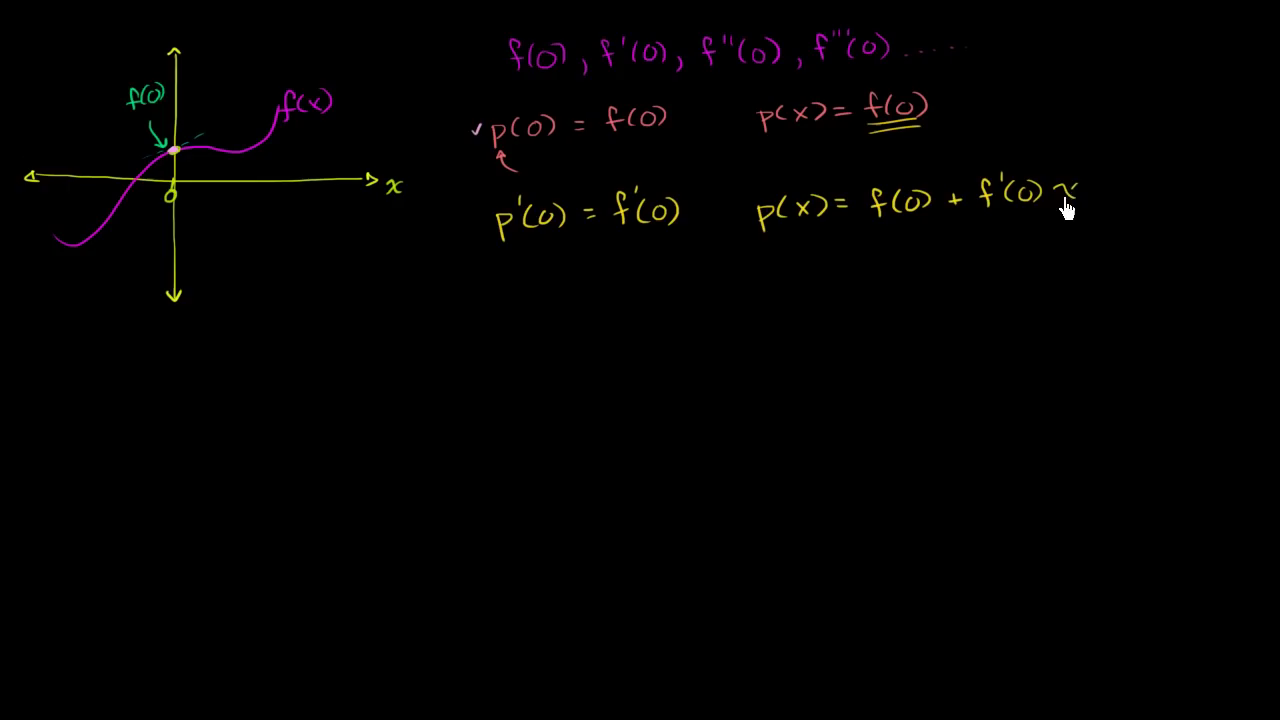 f(0), f'(0), f''(0), f'''(0) .....
f(0)
f(x)
p(0) = f(0)
p(x) = f(0)
x
0
p'(0) = f'(0)
p(x) = f(0) + f'(0) x